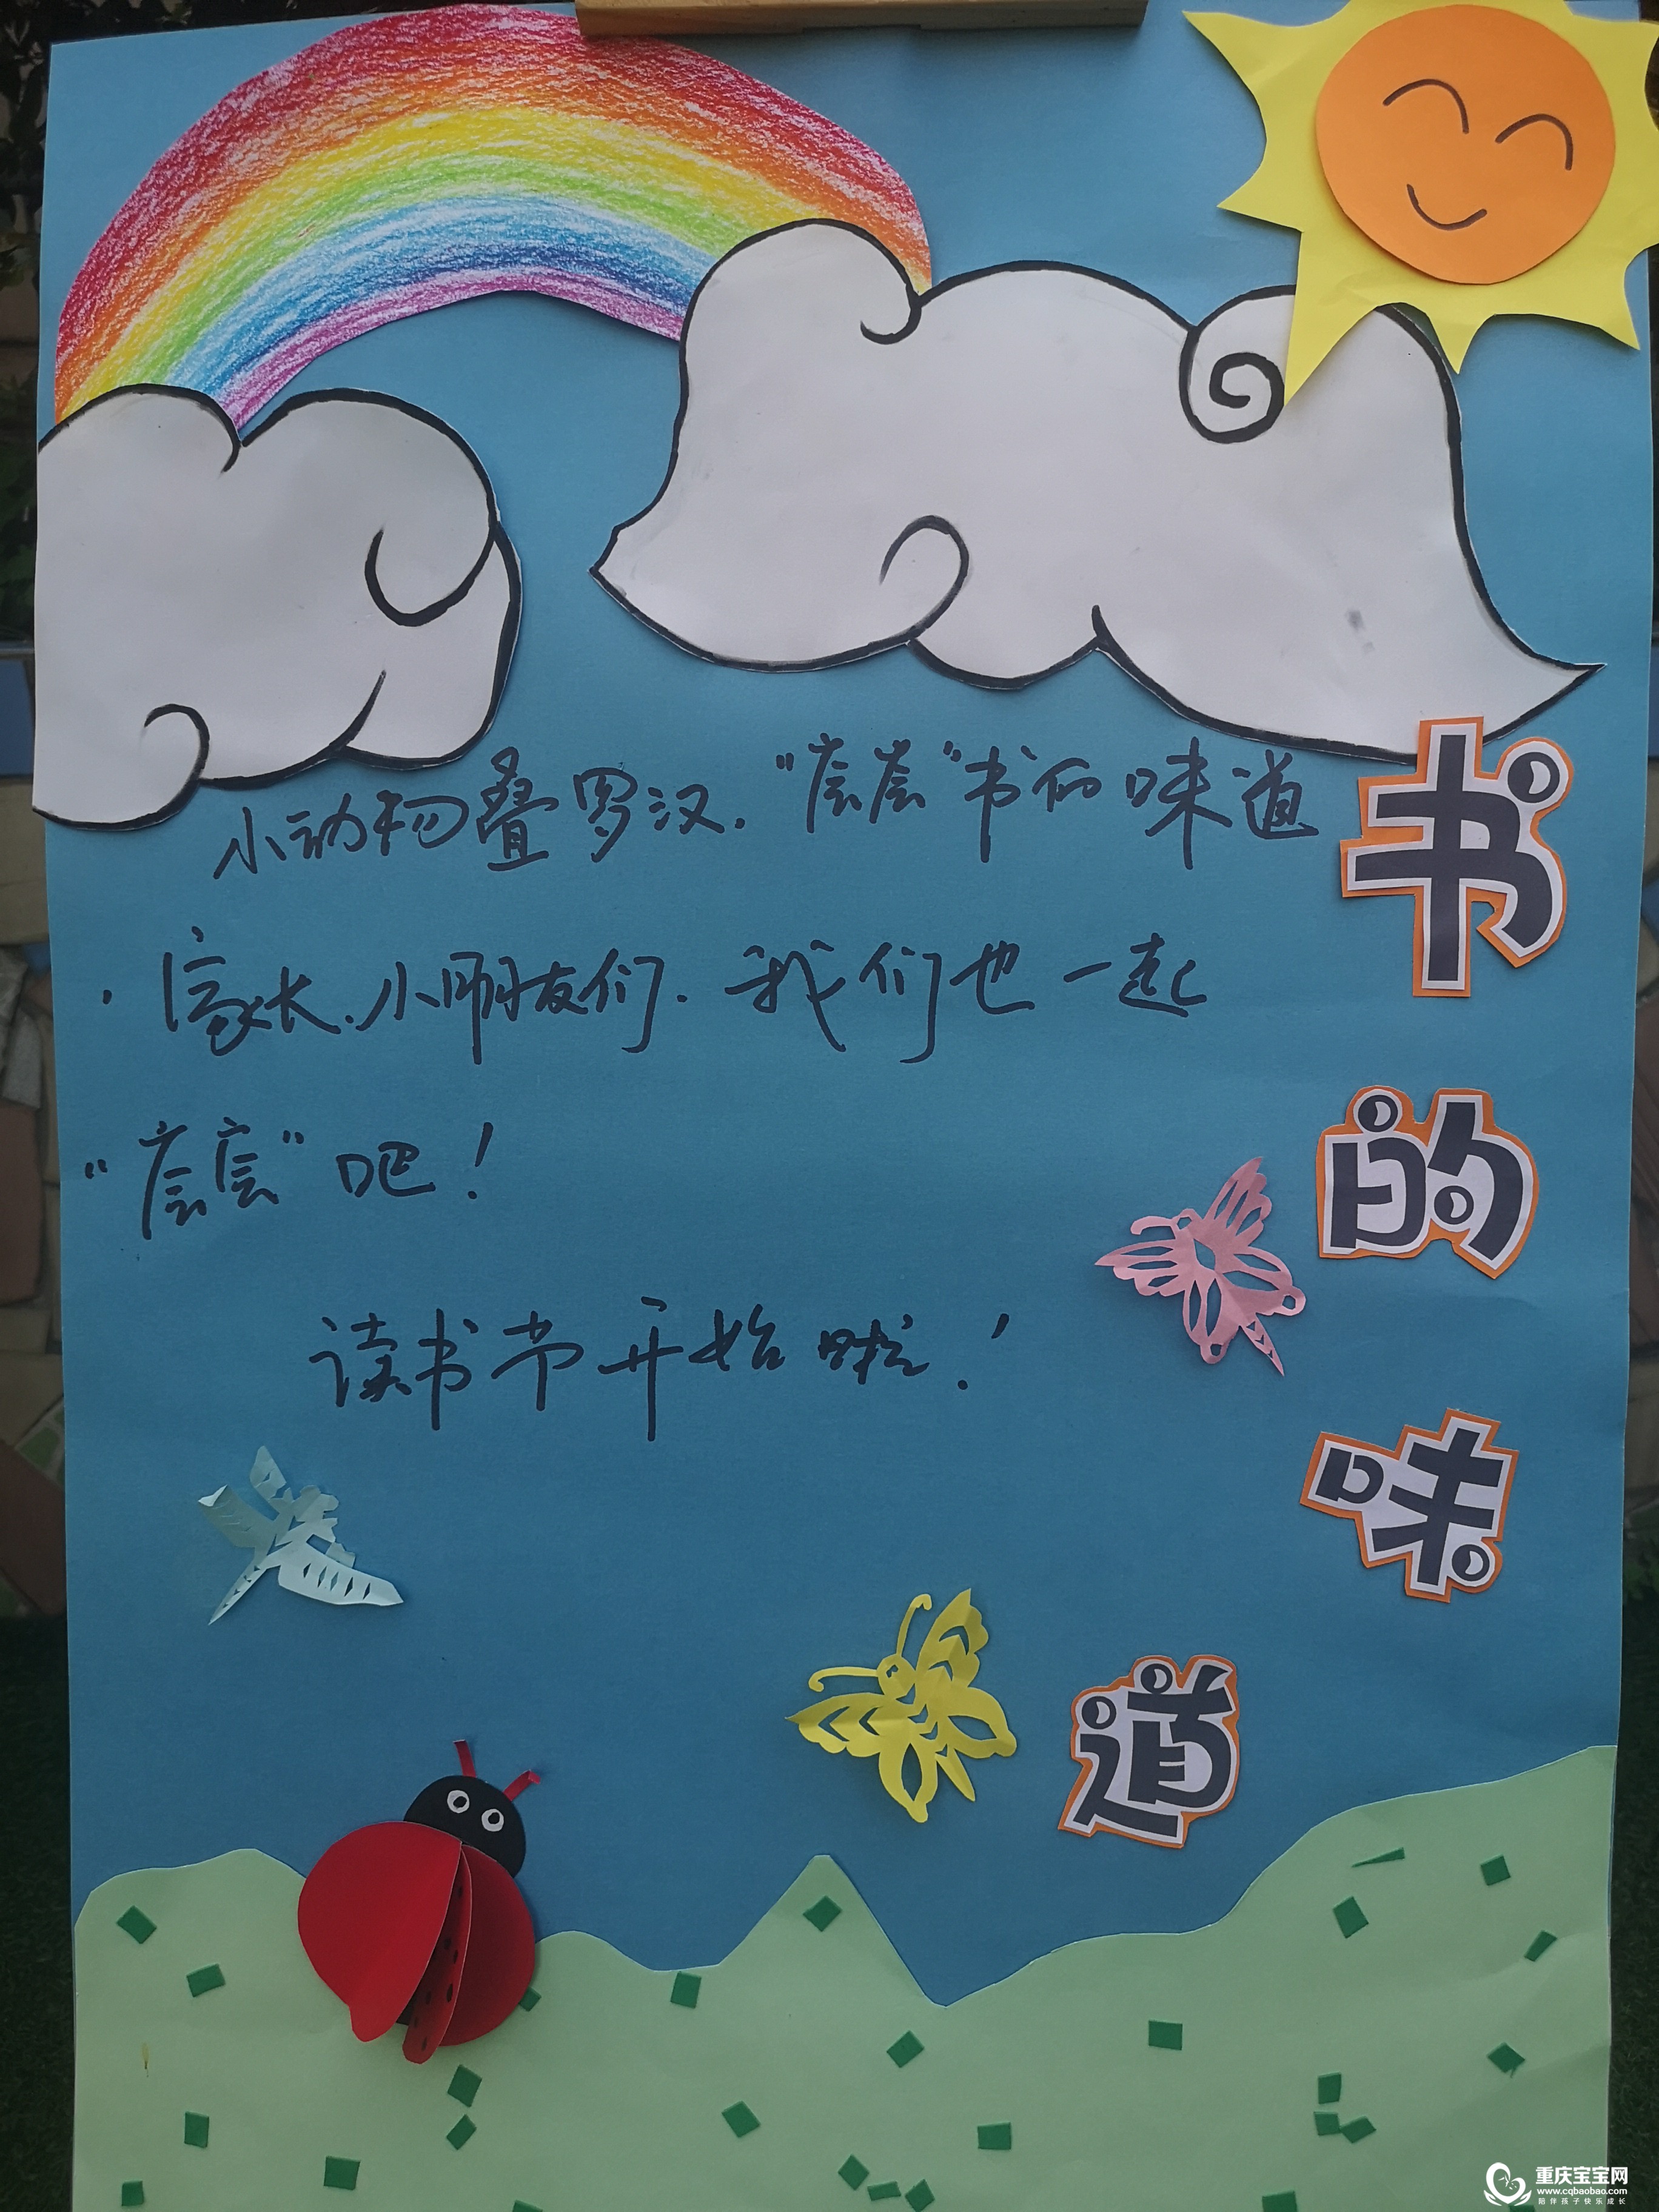 书的味道
小动物叠罗汉,“层层”书的味道
家长、小朋友们,我们也一起
“层层”吧!
读书节开始啦!
重庆宝宝网
www.cqbaobao.com
陪伴孩子快乐成长